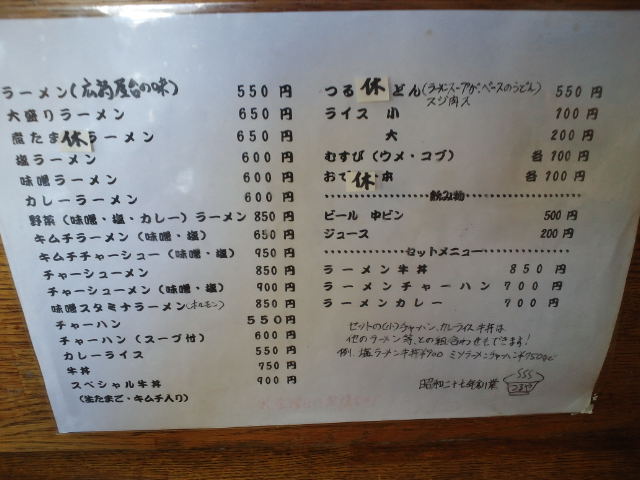 ラーメン(広島屋台の味) 550円
大盛りラーメン 650円
煮たま休ラーメン 650円
塩ラーメン 600円
味噌ラーメン 600円
カレーラーメン 600円
野菜(味噌・塩・カレー)ラーメン 850円
キムチラーメン(味噌・塩) 650円
キムチチャーシュー(味噌・塩) 950円
チャーシューメン 850円
チャーシューメン(味噌・塩) 900円
味噌スタミナラーメン(ホルモン) 850円
チャーハン 550円
チャーハン(スープ付) 600円
カレーライス 550円
牛丼 750円
スペシャル牛丼 900円
(生たまご・キムチ入り)
つる休どん(ラーメンスープがベースのうどん) 550円
スジ肉入
ライス 小 100円
大 200円
むすび(ウメ・コブ) 各100円
おで休 各100円
飲み物
ビール 中ビン 500円
ジュース 200円
セットメニュー
ラーメン牛丼 850円
ラーメンチャーハン 700円
ラーメンカレー 700円
セットの(小)チャーハン、カレーライス、牛丼は
他のラーメン等、との組み合わせもできます!
例、塩ラーメン牛丼¥900 ミソラーメンチャーハン¥750など
昭和二十七年創業
つるや